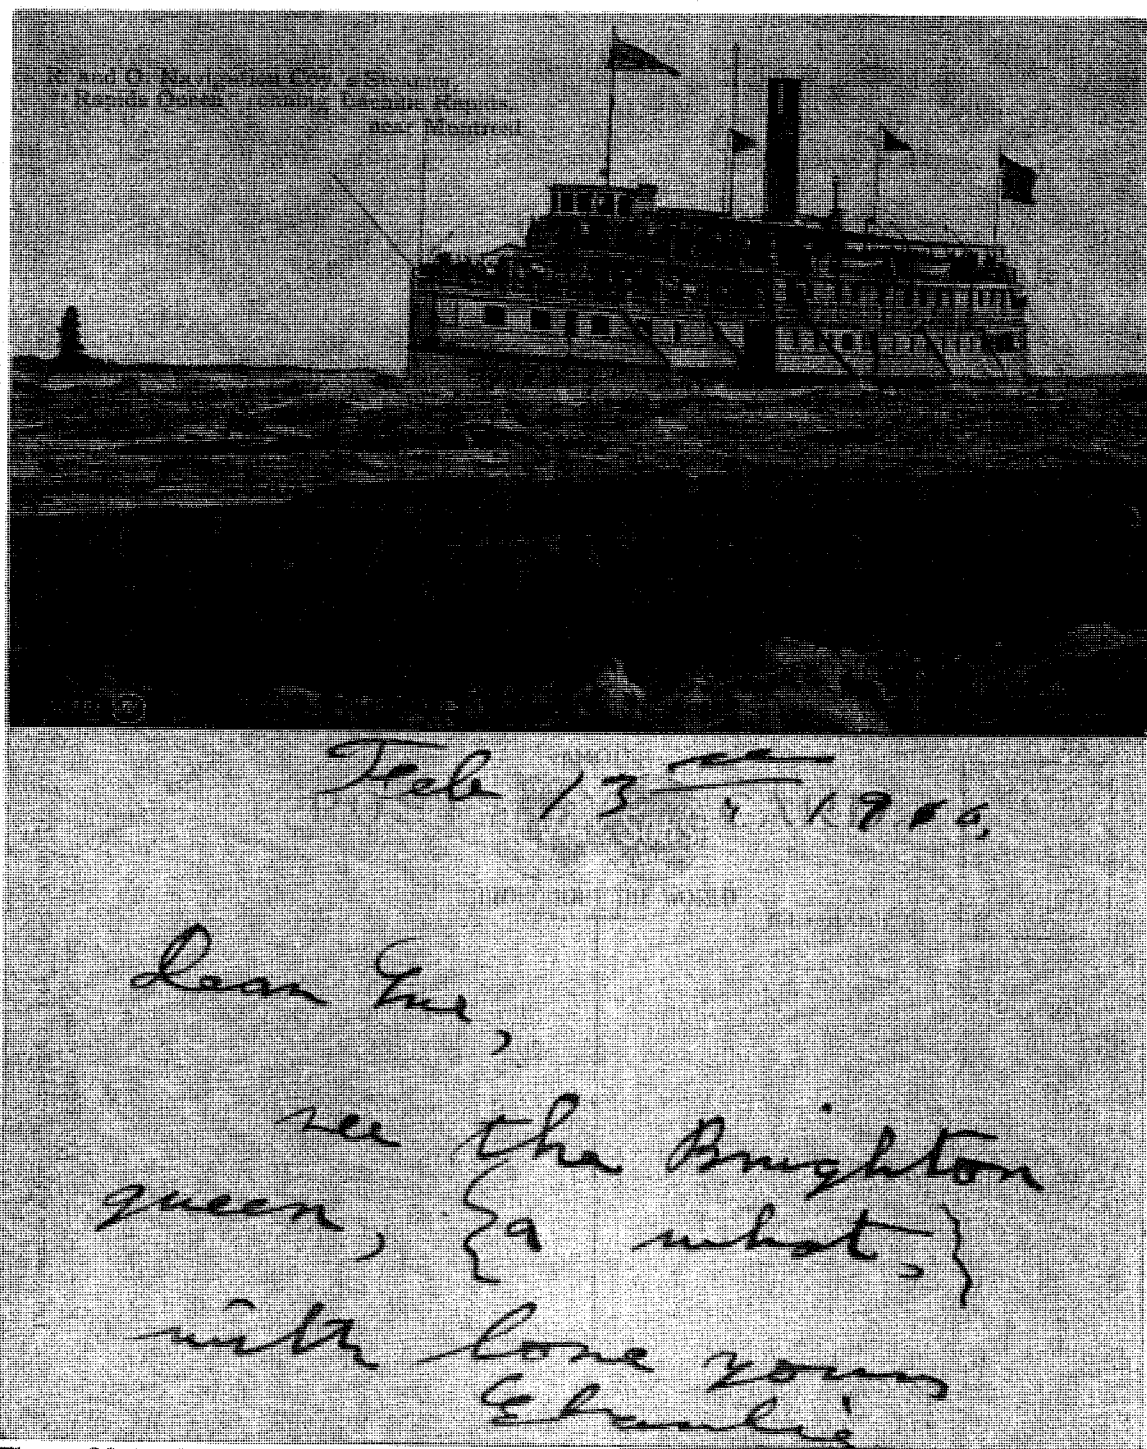 R. and O. Navigation Coy.'s Steamer,
"Rapids Queen" running Lachine Rapids,
near Montreal
Feb 13th 1906,
Dear Gue,
see the Brighton
queen, {a what,}
with love yours
Charlie